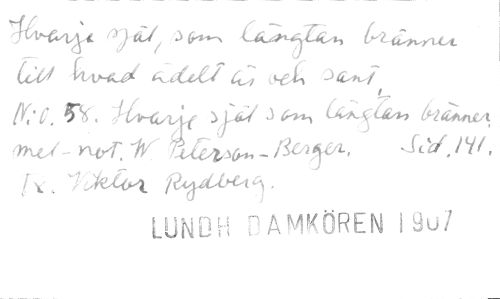 Hvarje själ, som längtan bränner
till hvad ädelt är och sant,
N:o. 58. Hvarje själ som längtan bränner.
mel-not. W Peterson-Berger. Sid. 141.
Dr. Viktor Rydberg.
LUNDH DAMKÖREN 1907